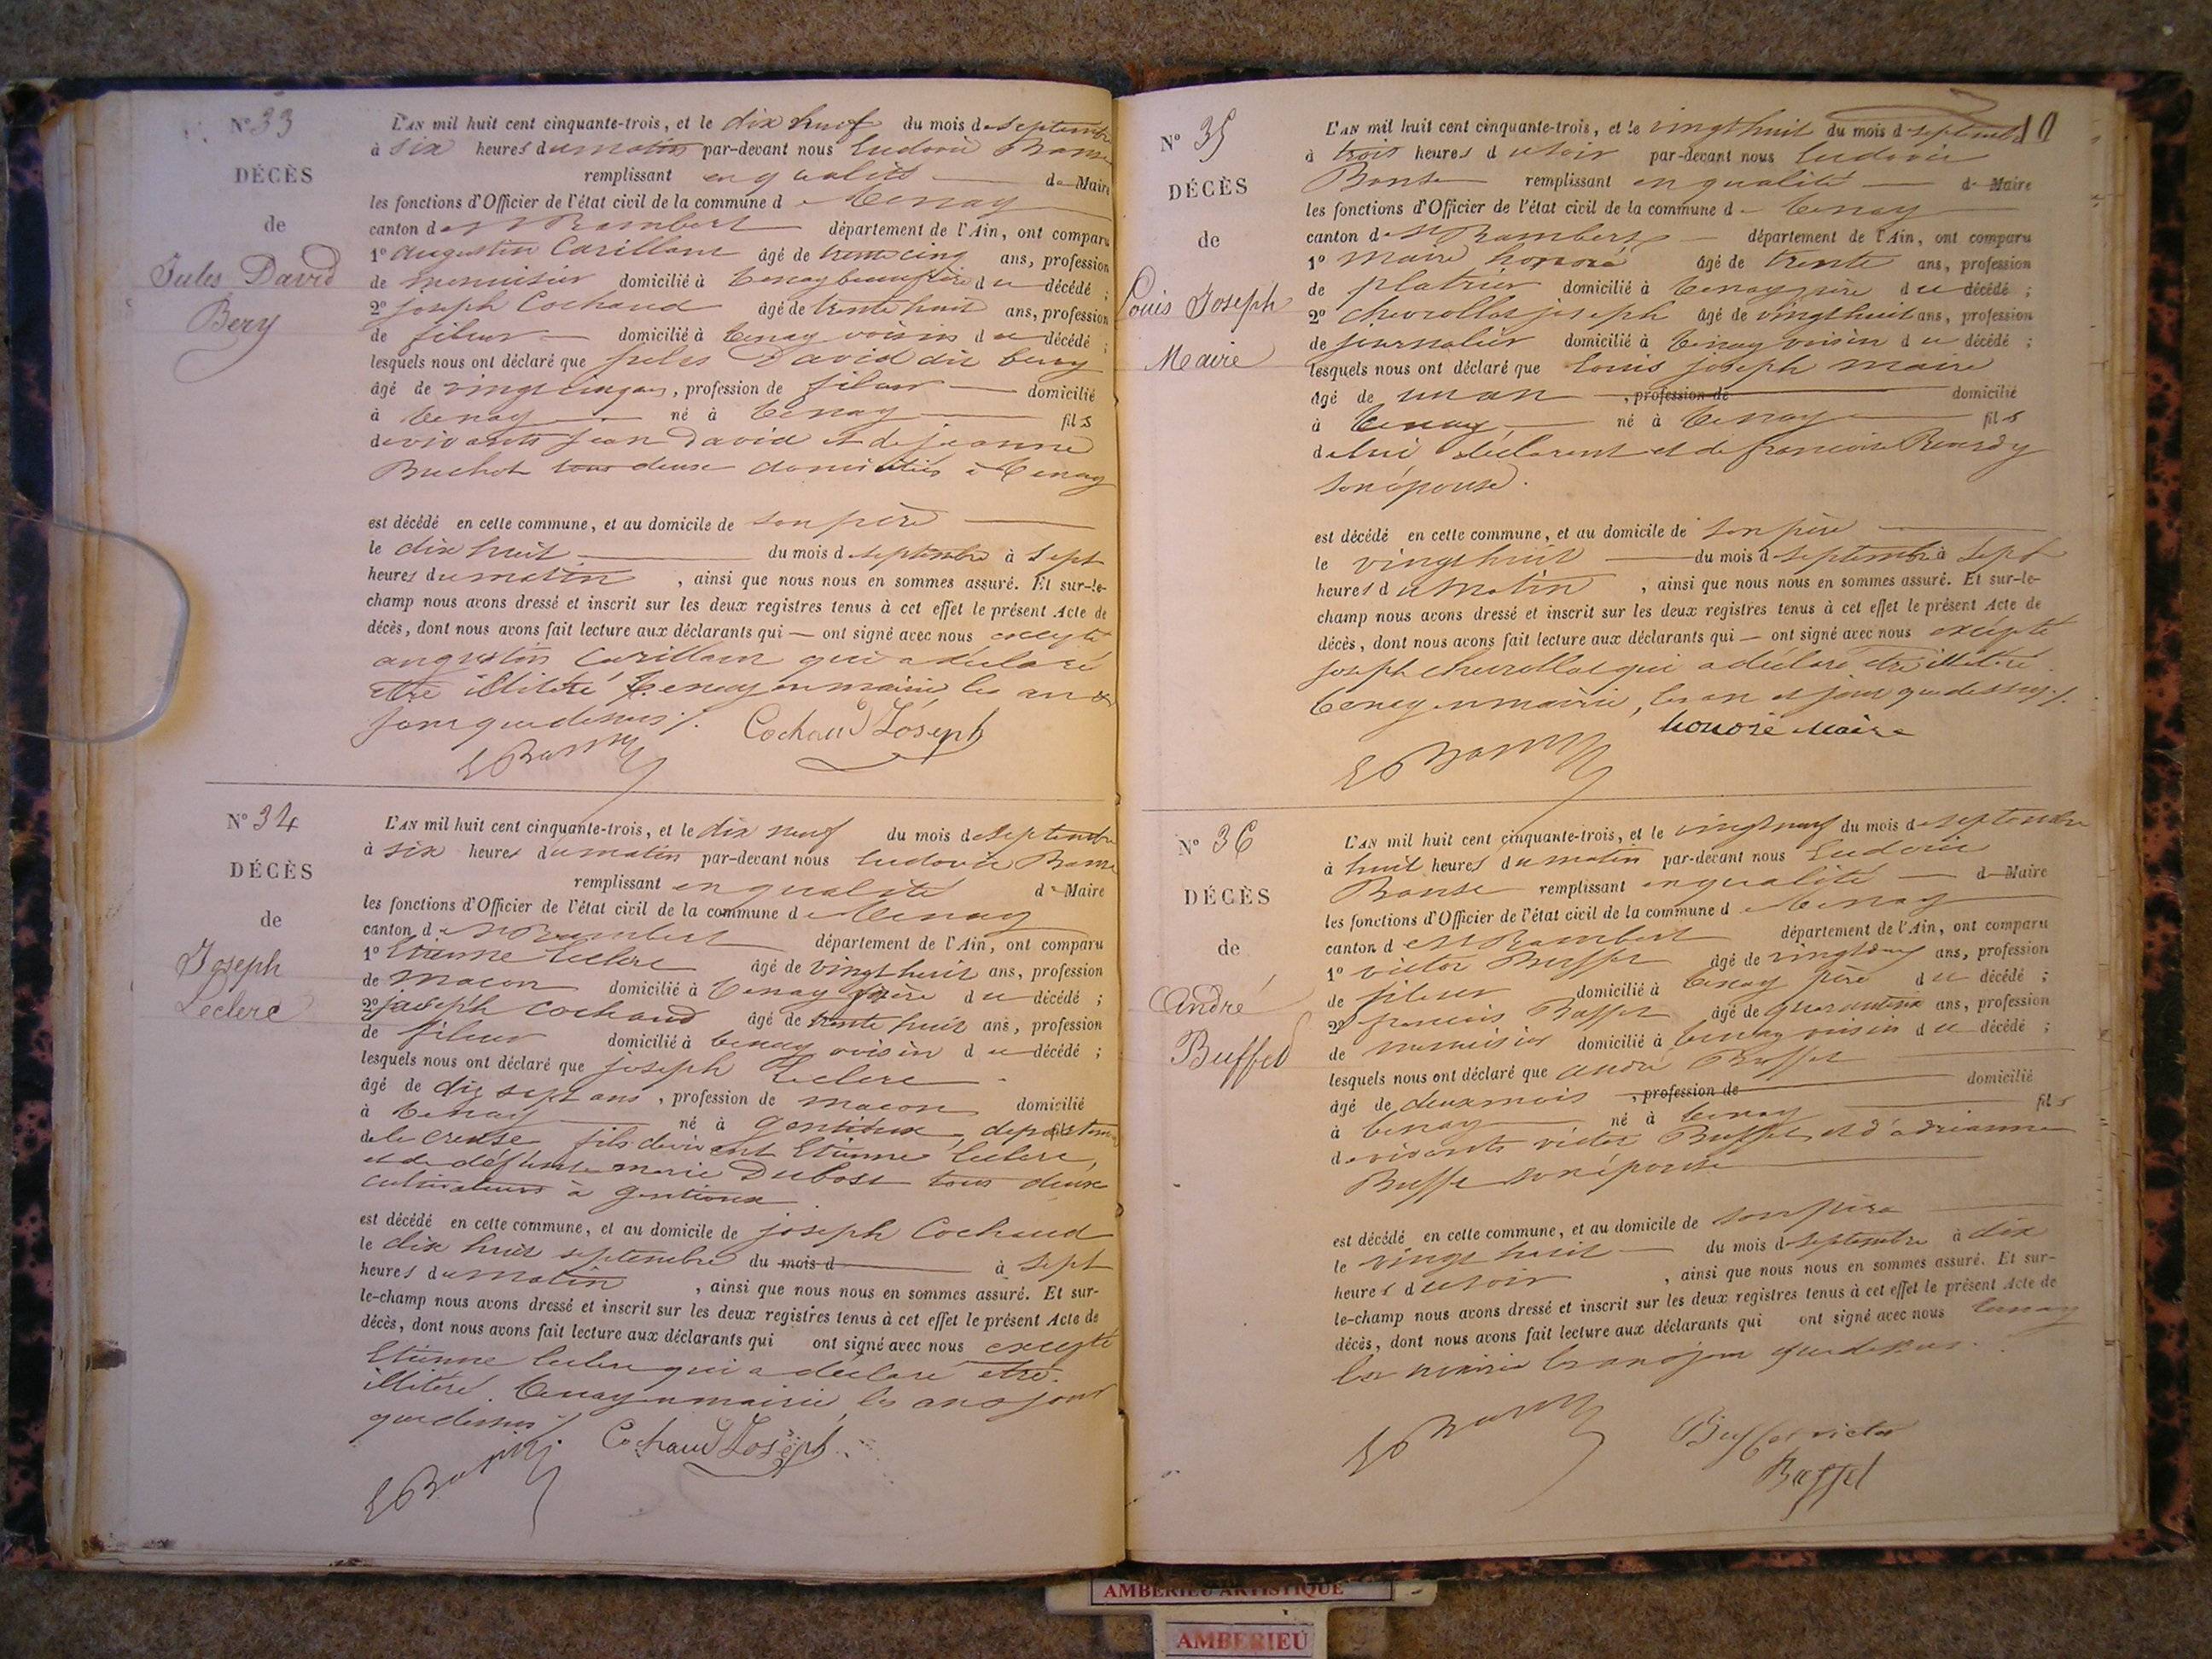 N° 33
DÉCÈS
de
Jules David
Bery
L'AN mil huit cent cinquante-trois, et le dix huit du mois de septembre
à six heures du matin par-devant nous Ludovic Bonne
remplissant en qualité de Maire
les fonctions d'Officier de l'état civil de la commune de Tenay
canton de St Rambert département de l'Ain, ont comparu
1° augustin Carillan âgé de trente cinq ans, profession
de menuisier domicilié à Tenay beaufrère du décédé ;
2° joseph Cochaud âgé de trente huit ans, profession
de fileur domicilié à Tenay voisin du décédé ;
lesquels nous ont déclaré que jules David dit bery
âgé de vingt cinq ans, profession de fileur domicilié
à Tenay né à Tenay fils
de vivants jean David et de jeanne
Buchot tous deux domiciliés à Tenay
est décédé en cette commune, et au domicile de son père
le dix huit du mois de septembre à sept
heures du matin, ainsi que nous nous en sommes assuré. Et sur-le-
champ nous avons dressé et inscrit sur les deux registres tenus à cet effet le présent Acte de
décès, dont nous avons fait lecture aux déclarants qui — ont signé avec nous excepté
augustin Carillan qui a déclaré
être illitéré Tenay en mairie les an &
jour que dessus /.
Cochaud Joseph
N° 34
DÉCÈS
de
Joseph
Leclerc
L'AN mil huit cent cinquante-trois, et le dix neuf du mois de septembre
à six heures du matin par-devant nous Ludovic Bonne
remplissant en qualité de Maire
les fonctions d'Officier de l'état civil de la commune de Tenay
canton de St Rambert département de l'Ain, ont comparu
1° Etienne Leclerc âgé de vingt huit ans, profession
de macon domicilié à Tenay frère du décédé ;
2° joseph Cochaud âgé de trente huit ans, profession
de fileur domicilié à Tenay voisin du décédé ;
lesquels nous ont déclaré que joseph Leclerc
âgé de dix sept ans, profession de macon domicilié
à Tenay né à Gentioux, département
de la creuse fils de vivant Etienne Leclerc,
et de défunte marie Dubost tous deux
cultivateurs à Gentioux
est décédé en cette commune, et au domicile de joseph Cochaud
le dix huit septembre du mois d à sept
heures du matin, ainsi que nous nous en sommes assuré. Et sur-
le-champ nous avons dressé et inscrit sur les deux registres tenus à cet effet le présent Acte de
décès, dont nous avons fait lecture aux déclarants qui ont signé avec nous excepté
Etienne Leclerc qui a déclaré etre
illitéré. Tenay en mairie, les an & jour
que dessus /.
Cochaud Joseph
10
N° 35
DÉCÈS
de
Louis Joseph
Maire
L'AN mil huit cent cinquante-trois, et le vingt huit du mois de septembre
à trois heures du soir par-devant nous Ludovic
Bonne remplissant en qualité de Maire
les fonctions d'Officier de l'état civil de la commune de Tenay
canton de St Rambert département de l'Ain, ont comparu
1° Maire honoré âgé de trente ans, profession
de platrier domicilié à Tenay père du décédé ;
2° chevrollat joseph âgé de vingt huit ans, profession
de journalier domicilié à Tenay voisin du décédé ;
lesquels nous ont déclaré que Louis joseph maire
âgé de un an, profession de domicilié
à Tenay né à Tenay fils
de lui déclarant et de francoise
son épouse.
est décédé en cette commune, et au domicile de son père
le vingt huit du mois de septembre à sept
heures du matin, ainsi que nous nous en sommes assuré. Et sur-le-
champ nous avons dressé et inscrit sur les deux registres tenus à cet effet le présent Acte de
décès, dont nous avons fait lecture aux déclarants qui — ont signé avec nous excépté
joseph chevrollat qui a déclaré être illitéré
Tenay en mairie, les an et jour que dessus /.
honoré Maire
N° 36
DÉCÈS
de
André
Buffet
L'AN mil huit cent cinquante-trois, et le vingt neuf du mois de septembre
à huit heures du matin par-devant nous Ludovic
Bonne remplissant en qualité de Maire
les fonctions d'Officier de l'état civil de la commune de Tenay
canton de St Rambert département de l'Ain, ont comparu
1° victor Buffet âgé de ans, profession
de fileur domicilié à Tenay père du décédé ;
2° francois Buffet âgé de ans, profession
de menuisier domicilié à Tenay voisin du décédé ;
lesquels nous ont déclaré que andré Buffet
âgé de deux mois, profession de domicilié
à Tenay né à Tenay fils
de vivants victor Buffet et d'adrianne
Buffe son épouse
est décédé en cette commune, et au domicile de son père
le vingt huit du mois de septembre à dix
heures du soir, ainsi que nous nous en sommes assuré. Et sur-
le-champ nous avons dressé et inscrit sur les deux registres tenus à cet effet le présent Acte de
décès, dont nous avons fait lecture aux déclarants qui ont signé avec nous Tenay
en mairie les an & jour que dessus.
Buffet victor
Buffet
AMBERIEU ARTISTIQUE
AMBERIEU